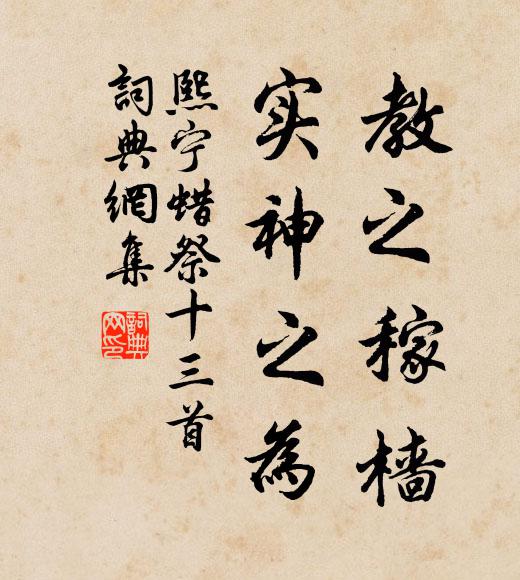 教之稼檣
实神之為
熙宁蜡祭十三首
詞典網集
詞典
网印